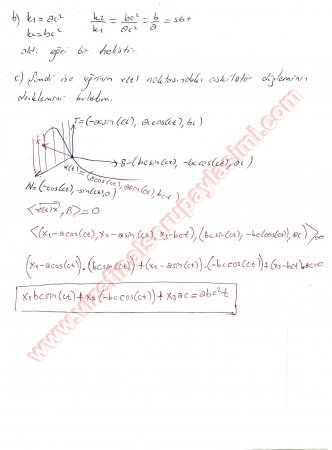 b) k₁ = ac²   k₂/k₁ = bc²/ac² = b/a = sbt
k₂ = bc²
old. eğri bir helistir.
c) Şimdi ise eğrinin α(t) noktasındaki oskülatör düzleminin
denklemini bulalım.
T=(-acsin(ct), accos(ct), bc)
B=(bcsin(ct), -bccos(ct), ac)
α(t)=(acos(ct), asin(ct), bct)
N=(-cos(ct), -sin(ct), 0)
<α(t)x, B> = 0
<(x₁-acos(ct), x₂-asin(ct), x₃-bct), (bcsin(ct), -bccos(ct), ac)> = 0
(x₁-acos(ct)).(bcsin(ct)) + (x₂-asin(ct)).(-bccos(ct)) + (x₃-bct)ac=0
x₁bcsin(ct) + x₂(-bccos(ct)) + x₃ac = abc²t